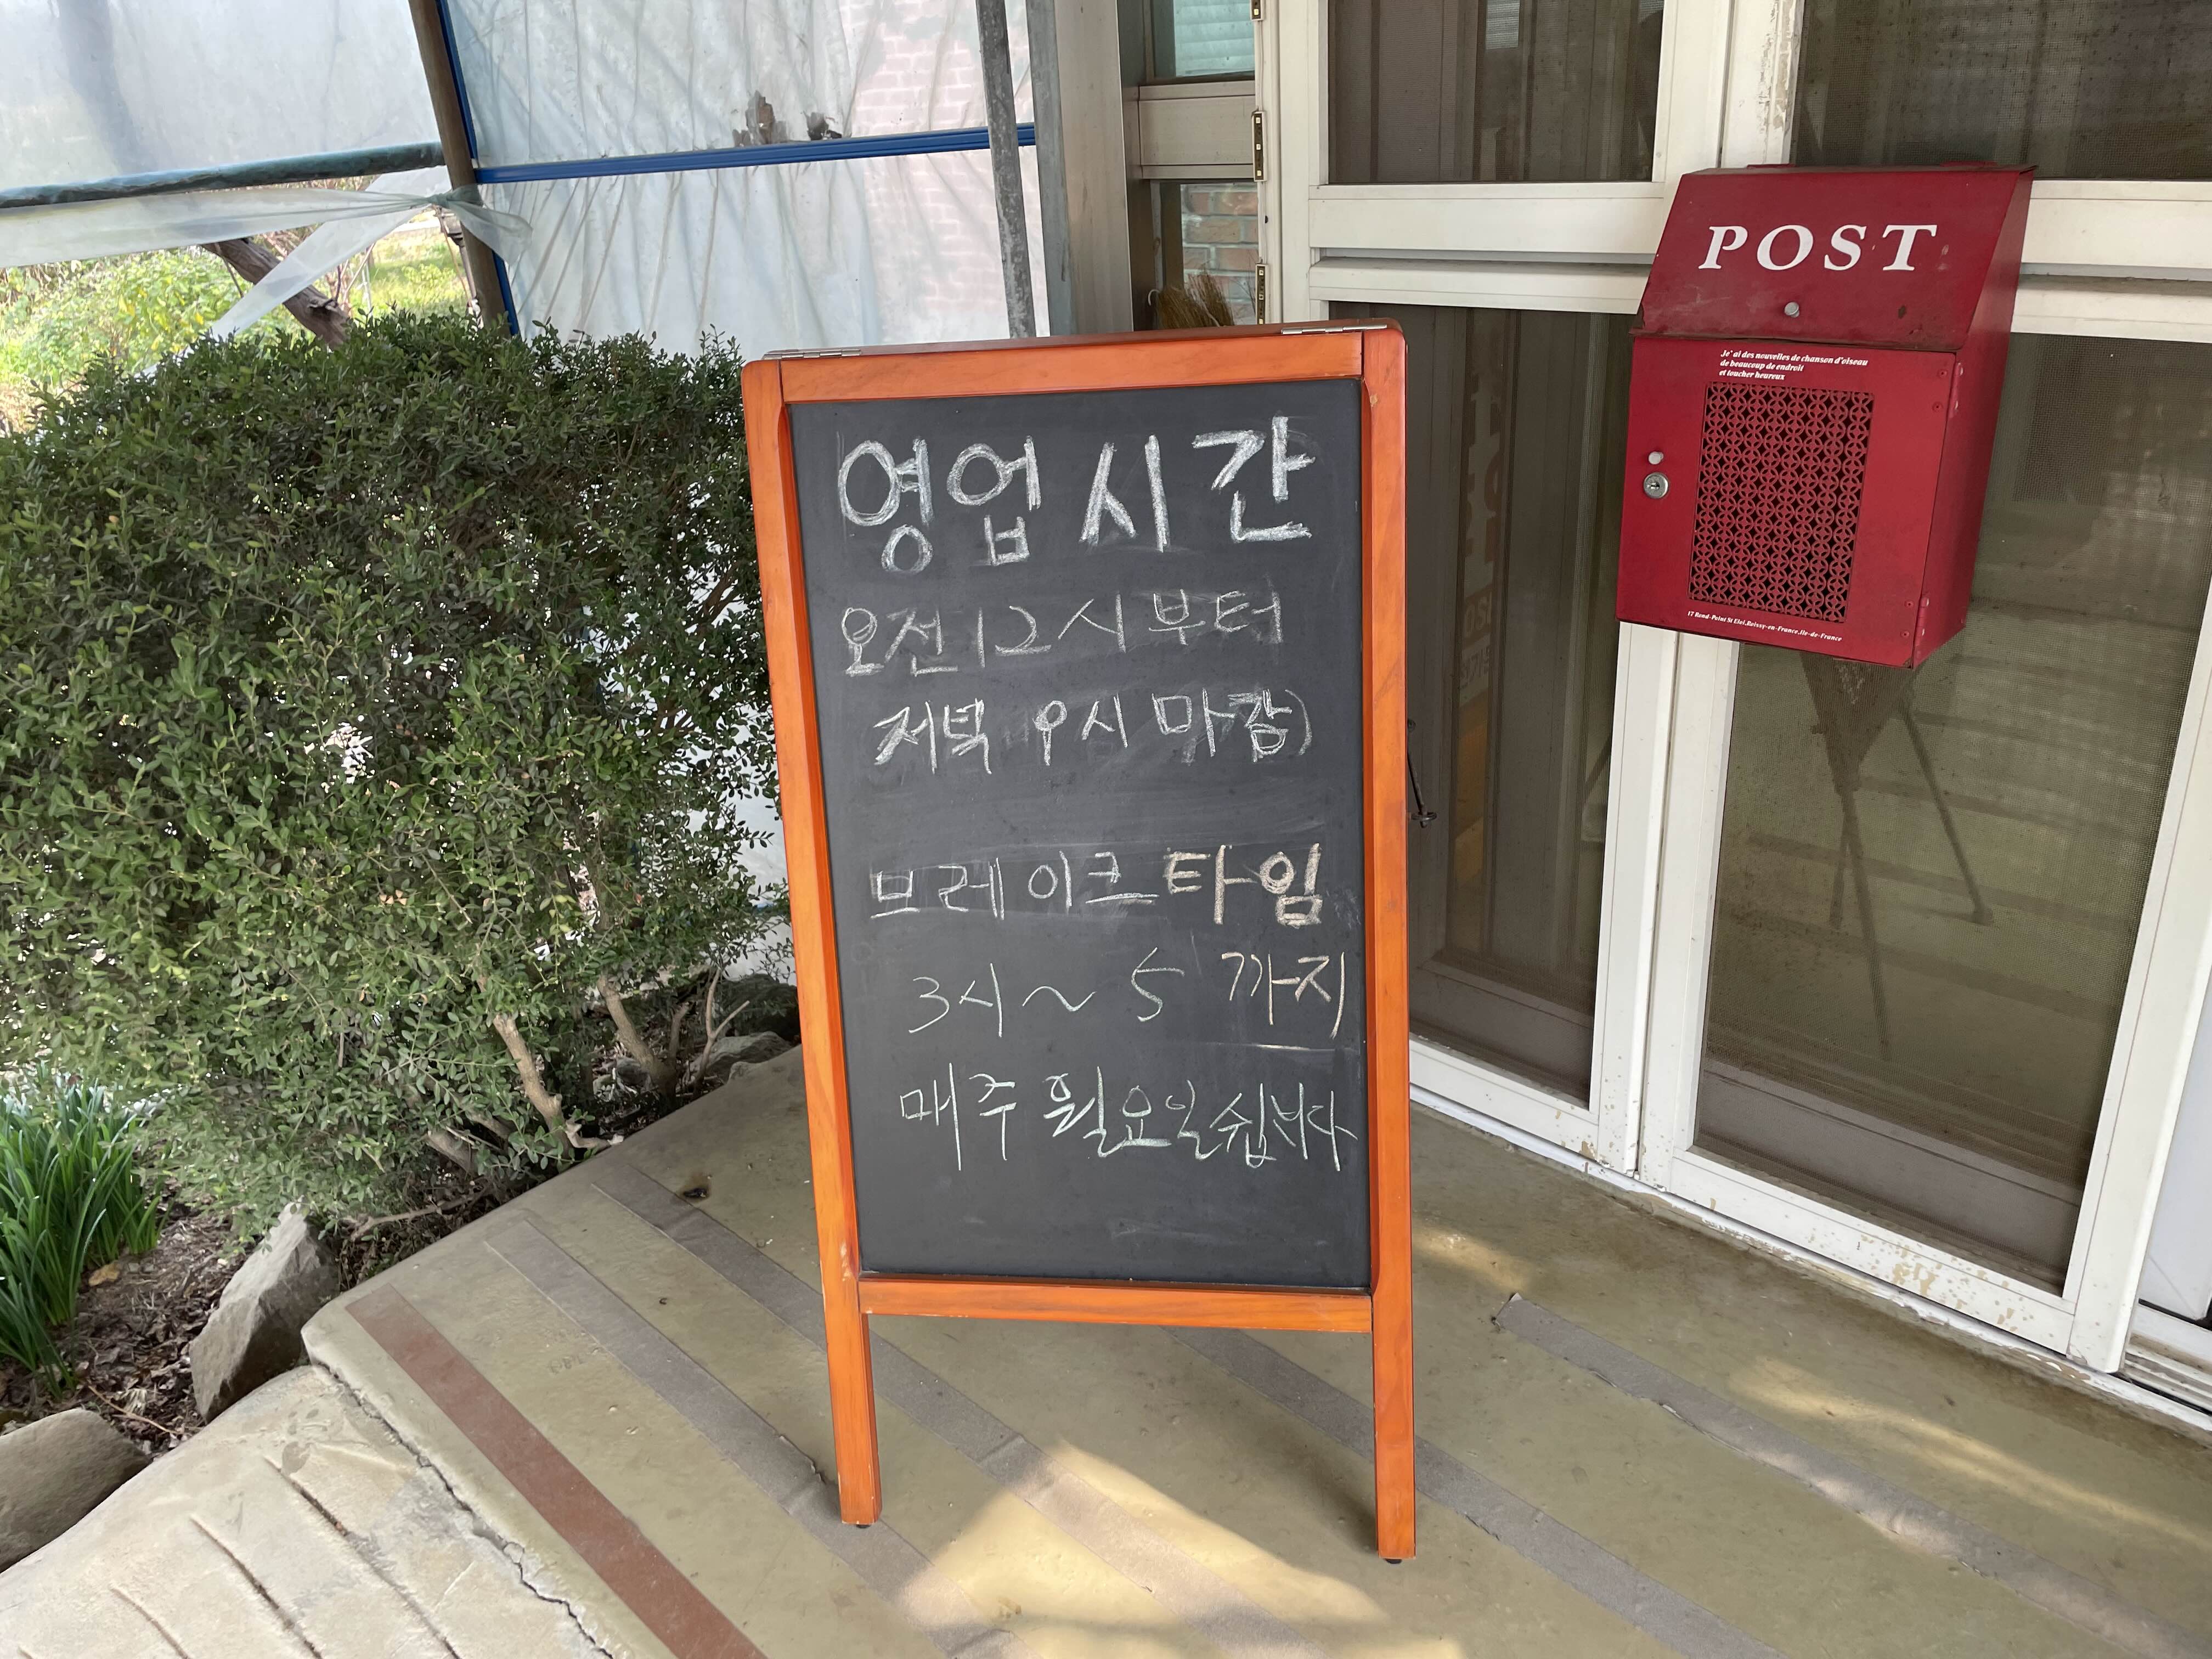 영업시간
오전12시부터
저녁 9시 마감)
브레이크타임
3시~5 까지
매주 월요일쉽니다
POST
Je' ai des nouvelles de chanson d'oiseau
de beaucoup de endroit
et toucher heureux
17 Rond-Point St Eloi,Boissy-en-France,Ile-de-France